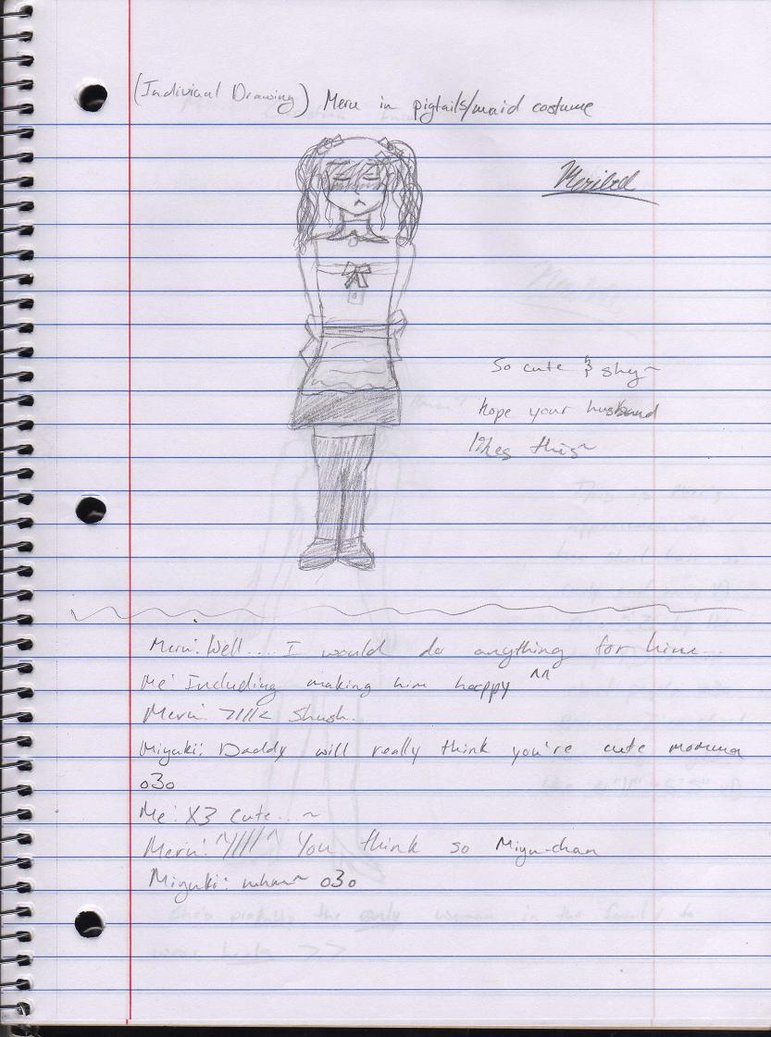 (Indiviual Drawing) Meru in pigtails/maid costume
So cute & shy~
hope your husband
likes this~
Meru: Well.... I would do anything for him...
Me: Including making him happy ^^
Meru: >///< Shush.
Miyuki: Daddy will really think you're cute momma
o3o
Me: X3 cute...~
Meru: ^////^ You think so Miyu-chan
Miyuki: o3o